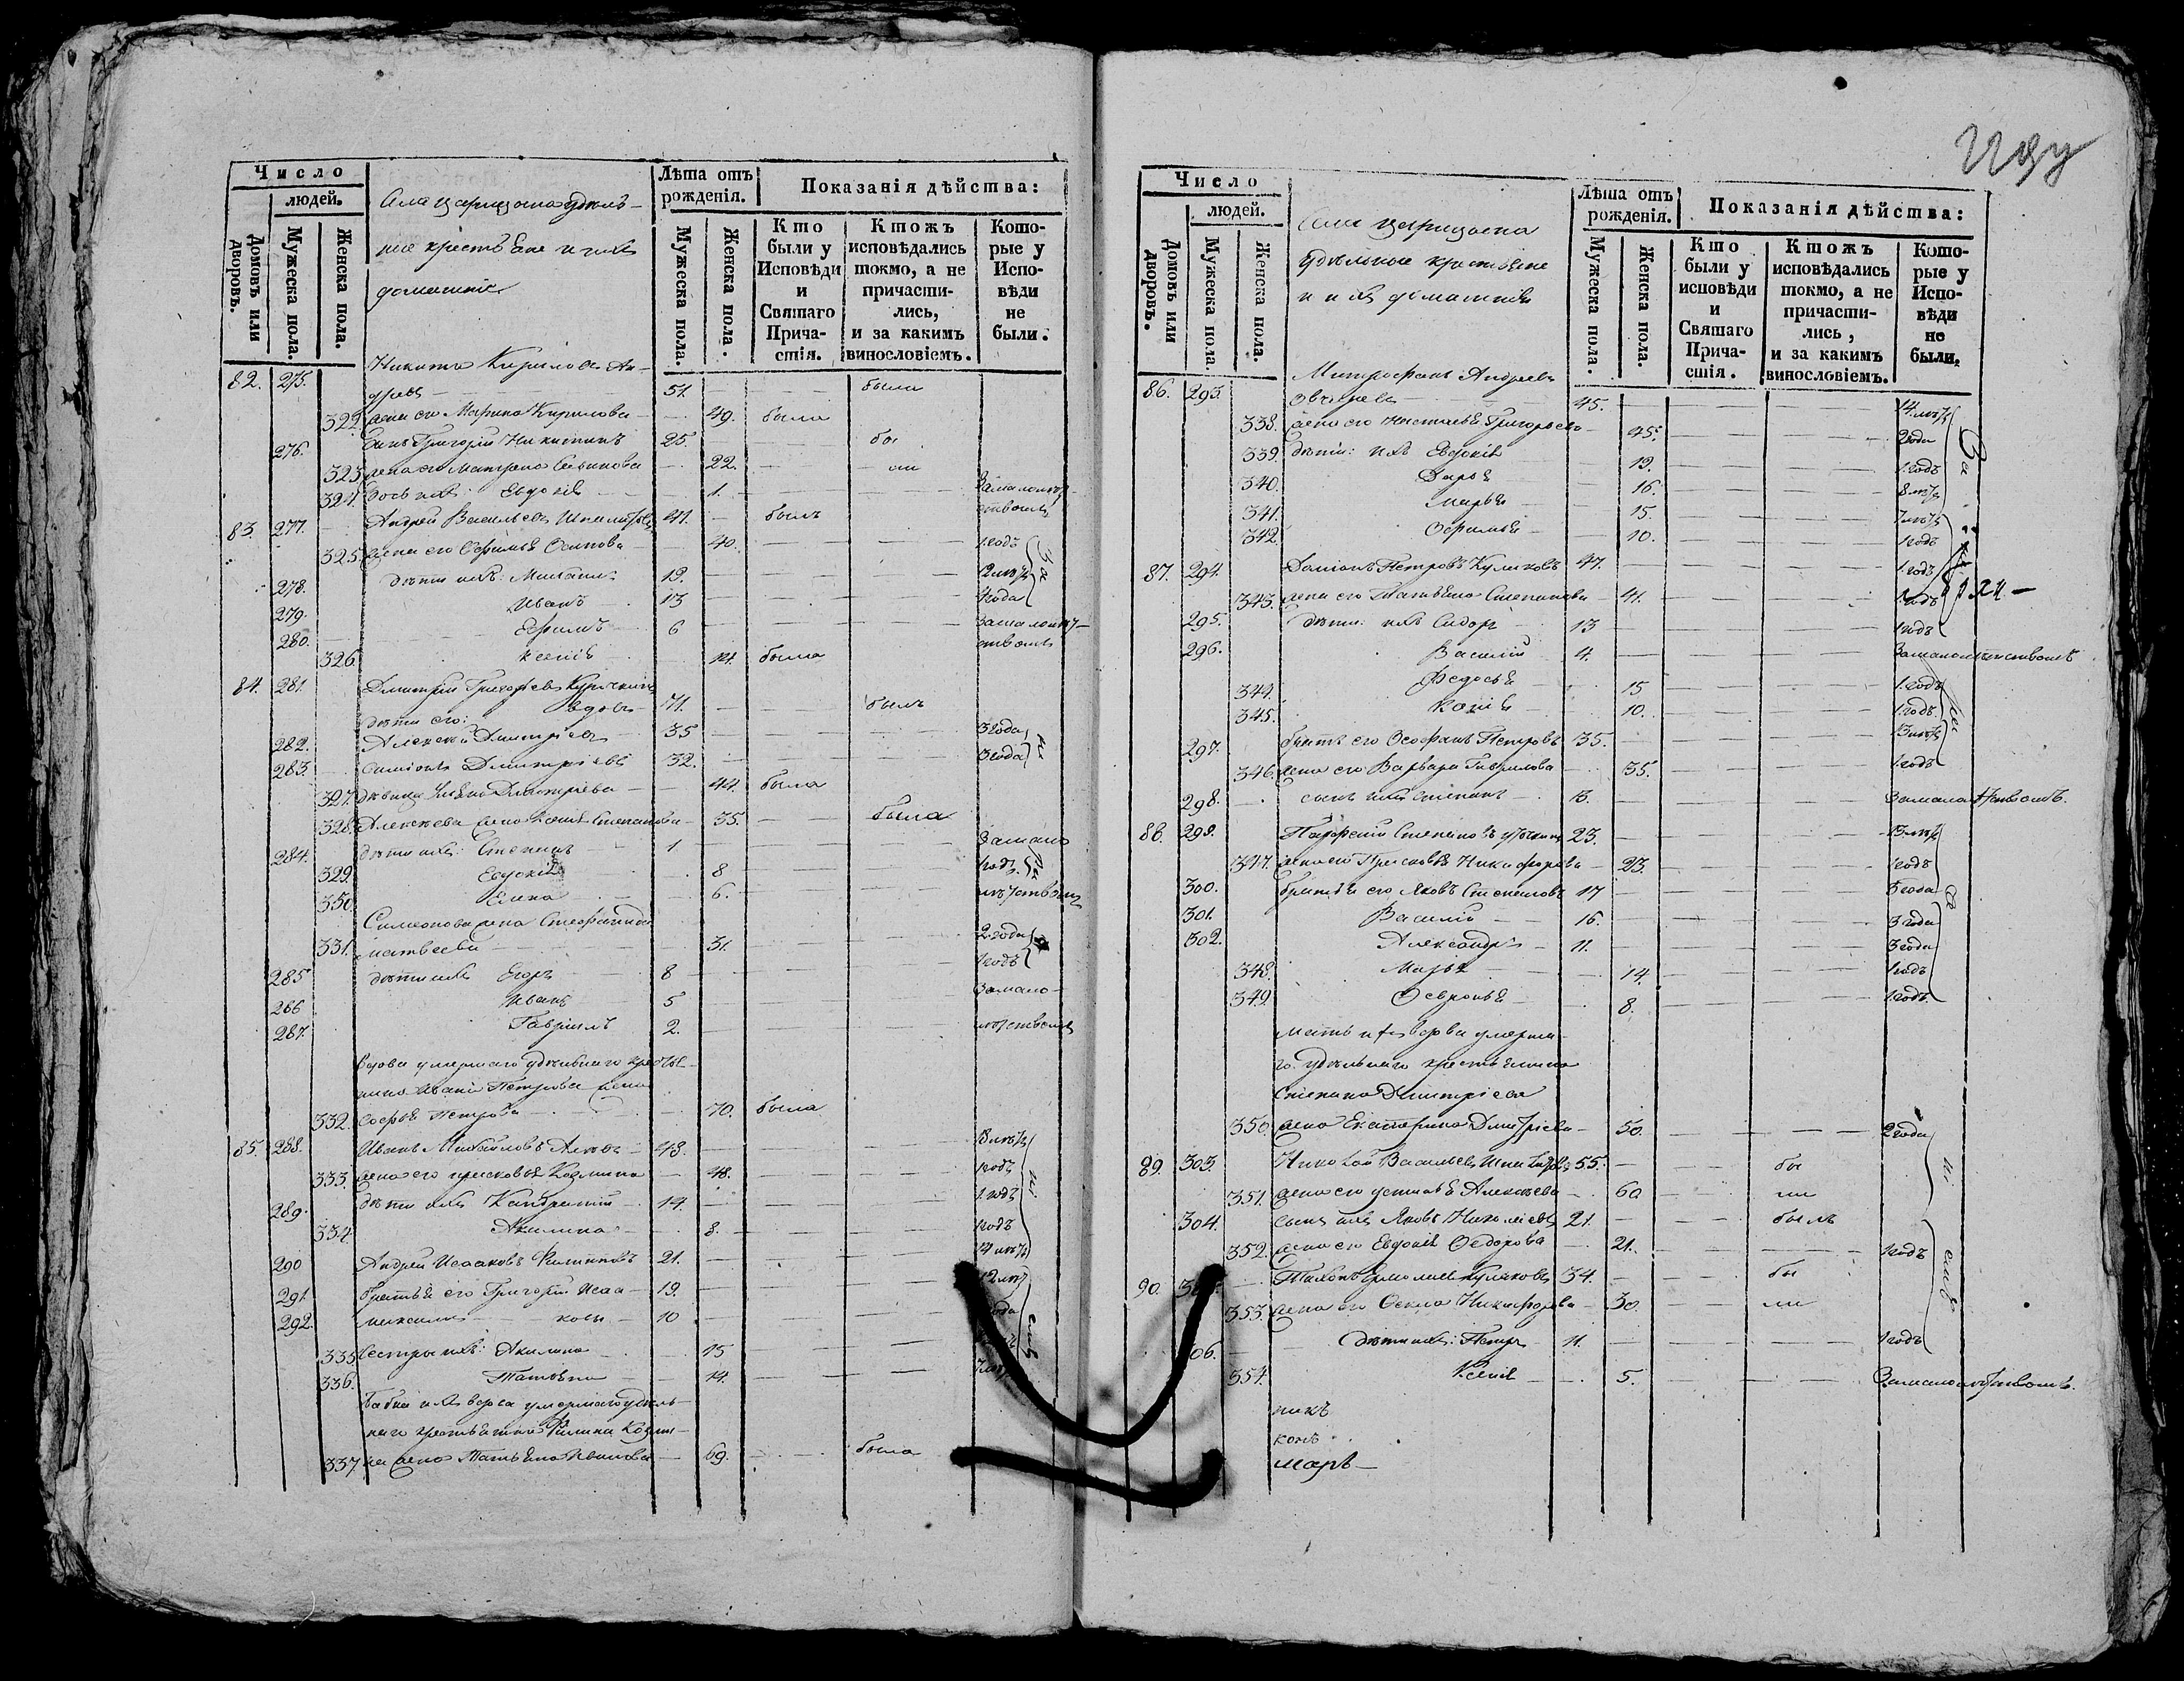 Число
людей.
Домовъ или дворовъ.
Мужеска пола.
Женска пола.
Села царицына удѣль-
ные крестьяне и ихъ
домашніе
Лѣта отъ рожденія.
Мужеска пола.
Женска пола.
Показанія дѣйства:
Кто были у Исповѣди и Святаго Причастія.
Ктожъ исповѣдались токмо, а не причастились, и за какимъ винословіемъ.
Которые у Исповѣди не были.
82. 275. Никита Кириловъ Ан-
дреевъ 51. были
322. жена его Марина Кирилова 49. была
276. сынъ Григорій Никитинъ 25. бы
323. жена его Матрона 22. ли
324. дочь ихъ: Евдокія 1. За малолѣт-
83. 277. Андрей Васильевъ 41. былъ ствомъ
325. жена его Ефимья Осипова 40. 1. годъ
278. дѣти ихъ: 19. 12 лѣтъ
279. Иванъ 13 4 года
280. Ефимъ 6 За малолѣт-
326. Ксенія 14. была ствомъ
84. 281. Димитрій Григорьевъ Курочкинъ
вдовъ 71. былъ
дѣти его:
282. Алексѣй Димитріевъ 35 3 года
283. Симіонъ Димитріевъ 32. 3 года
327. дѣвица Димитріева 44. была
328. Алексѣева жена Ксенія Степанова 35. была
284. дѣти ихъ: Степанъ 1 За мало
329. Евдокія 8 1 годъ
330. Елена 6. лѣтствомъ
Симіонова жена Стефанида
331. матвеева 31. 2 года
285 дѣти ихъ Егоръ 8 1 годъ
286 Иванъ 5 За мало-
287. Гавріилъ 2. лѣтствомъ
Вдова умершаго удѣльнаго крестья-
нина Ивана Петрова жена
332. Софья Петрова 70. была
85. 288. Иванъ Михайловъ 48. 8 лѣтъ
333. жена его прасковья Козмина 48. 1 годъ
289. дѣти ихъ Кондратій 14. 1. годъ
334. Акилина 8. 1 годъ
290 Андрей Исааковъ Филиповъ 21. 14 лѣтъ
291 братья его Григорій Исаа- 19. 12 лѣтъ
292. максимъ ковы 10
335 Сестры ихъ: Акилина 15
336. Татьяна 14.
Бабка ихъ вдова умершаго удѣль
наго крестьянина Филипа Козми-
337 на жена Татьяна Иванова 69. была
Число
людей.
Домовъ или дворовъ.
Мужеска пола.
Женска пола.
Села царицына
Удѣльные крестьяне
и ихъ домашніе
Лѣта отъ рожденія.
Мужеска пола.
Женска пола.
Показанія дѣйства:
Кто были у исповѣди и Святаго Причастія.
Ктожъ исповѣдались токмо, а не причастились, и за какимъ винословіемъ.
Которые у Исповѣди не были.
86. 293. Митрофанъ Андреевъ
45. 14. лѣтъ
338. жена его Настасья Григорьева 45. 2 года
339. дѣти: ихъ Евдокія 19. 1. годъ
340. Дарья 16. 8 лѣтъ
341. марья 15. 7 лѣтъ
342. Ефимья 10. 1 годъ
87. 294. Даміанъ Петровъ Куликовъ 47. 1. годъ
343. жена его Татьяна Степанова 41. 1 годъ
295. дѣти: ихъ Сидоръ 13 1 годъ
296. Василій 4. За малолѣтствомъ
344. Федосья 15 1. годъ
345. Ксенія 10. 1. годъ
297. братъ его Ѳеофанъ Петровъ 35. 13 лѣтъ
346. жена его Варвара Гаврилова 35. 1. годъ
298. сынъ ихъ Степанъ 3. За малолѣтствомъ.
86 299. Парфеній Степановъ 23. 13 лѣтъ
347. жена его Прасковья Никифорова 23. 1 годъ
300. братья его Яковъ Степановъ 17 3 года
301. Василій 16. 3 года
302. Александръ 11. 3 года
348. Марья 14. 1 годъ
349. Ѳевронья 8. 1. годъ
мать ихъ вдова умерша-
го удѣльнаго крестьянина
Степана Димитріева
350 жена Екатерина Димитріева 50. 2 года
89. 303. Николай Васильевъ 55. бы
351. жена его устинья Алексѣева 60 ли
304. сынъ ихъ Яковъ Николаевъ 21. былъ
352. жена его Евдокія Ѳедорова 21. 1 годъ
90. Тихонъ Ермолаевъ Куликовъ 34. бы
353. жена его Ѳекла Никифорова 30. ли
06. дѣти ихъ: Петръ 11. 1 годъ
354. Ксенія 5. За малолѣтствомъ.
никъ
конъ
марь